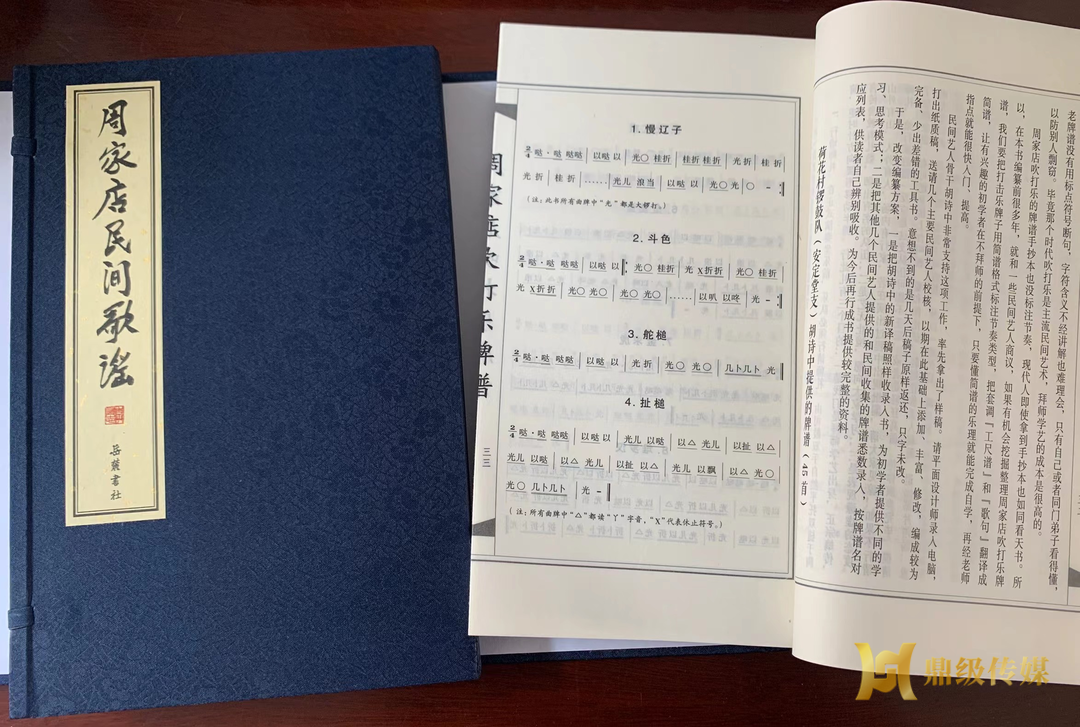 周家店民间歌谣
岳麓书社
1. 慢辽子
2/4 哒·哒 哒哒 | 以哒 以 | 光〇 桂折 | 桂折 桂折 | 光折 桂折 |
光折 | 桂折 | …… | 光儿 浪当 | 以哒 以 | 光〇 光 | 〇 - :‖
(注:此书所有曲牌中“光”都是大锣打。)
2. 斗色
2/4 哒·哒 哒哒 | 以哒 以 ‖: 光〇 桂折 | 光 X折折 | 光〇 桂折 |
光 X折折 | 光〇 光〇 | 光〇 光〇 | …… | 以叭 以咚 | 光 - :‖
3. 舵槌
2/4 哒·哒 哒哒 | 以哒 以 | 光 折 | 光〇 光〇 | 几卜几卜 光 ‖
4. 扯槌
2/4 哒·哒 哒哒 | 以哒 以 | 光儿 以哒 | 以△ 光儿 | 以扯 以△ |
光儿 以哒 | 以△ 光儿 | 以扯 以△ | 光儿 以飘 | 以△ 光〇 |
光〇 几卜几卜 | 光 - ‖
(注:所有曲牌中“△”都读“丫”字音,“X”代表休止符号。)
周家店吹打乐牌谱
三三
老牌谱没有用标点符号断句,字符含义不经讲解也难理会,只有自己或者同门弟子看得懂,
以防别人剽窃。毕竟那个时代吹打乐是主流民间艺术,拜师学艺的成本是很高的。
周家店吹打乐的牌谱手抄本也没标注节奏,现代人即使拿到手抄本也如同看天书。所
以,在本书编纂前很多年,就和一些民间艺人商议,如果有机会挖掘整理周家店吹打乐牌
谱,我们要把打击乐牌子用简谱格式标注节奏类型,把套调『工尺谱』和『歌句』翻译成
简谱,让有兴趣的初学者在不拜师的前提下,只要懂简谱的乐理就能完成自学,再经老师
指点就能很快入门、提高。
民间艺人骨干胡诗中非常支持这项工作,率先拿出了样稿。请平面设计师录入电脑,
打出纸质稿,送请几个主要民间艺人校核,以期在此基础上添加、丰富、修改,编成较为
完备、少出差错的工具书。意想不到的是几天后稿子原样返还,只字未改。
于是,改变编纂方案,一是把胡诗中的新译稿照样收录入书,为初学者提供不同的学
习、思考模式;二是把其他几个民间艺人提供的和民间收集的牌谱悉数录入,按牌谱名对
应列表,供读者自己辨别吸收。为今后再行成书提供较完整的资料。
荷花村锣鼓队(安定堂支)胡诗中提供的牌谱(45首)
鼎级传媒